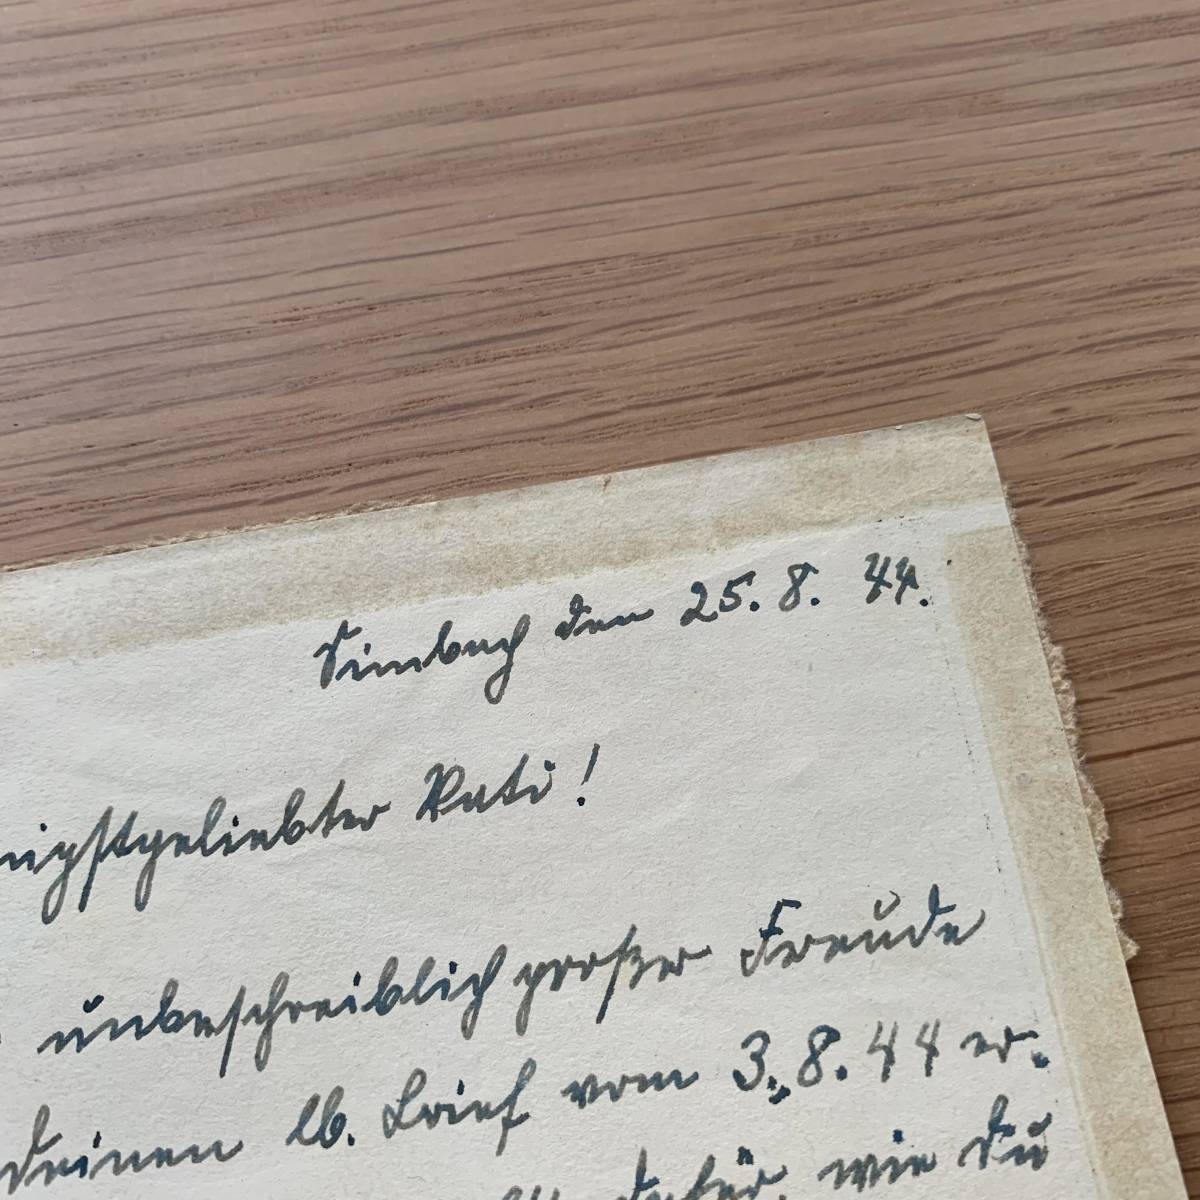 Simbach den 25.8.44.
nigstgeliebter Vati!
unbeschreiblich großer Freude
Deinen lb. Brief vom 3.8.44 er-
dafür, wie Du